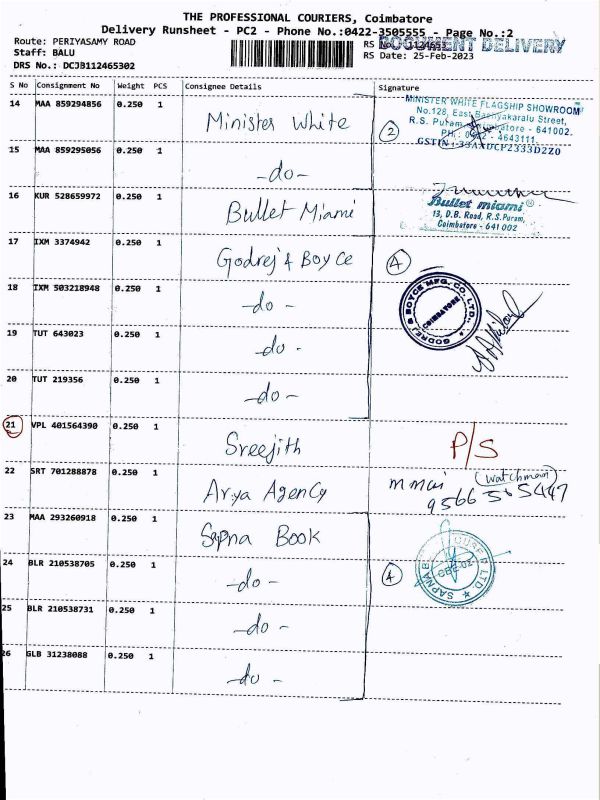 THE PROFESSIONAL COURIERS, Coimbatore
Delivery Runsheet - PC2 - Phone No.:0422-3505555 - Page No.:2
Route: PERIYASAMY ROAD
RS No.: 1124653
DOCUMENT DELIVERY
Staff: BALU
RS Date: 25-Feb-2023
DRS No.: DCJB112465302
S No Consignment No Weight PCS Consignee Details Signature
14 MAA 859294856 0.250 1 Minister White
2
MINISTER WHITE FLAGSHIP SHOWROOM
No.128, East Bashyakaralu Street,
R.S. Puram, Coimbatore - 641002.
PH.: 0422 - 4643111.
GSTIN: 33AADCP2333D2Z0
15 MAA 859295056 0.250 1 -do-
16 KUR 528659972 0.250 1 Bullet Miami
Bullet miami®
13, D.B. Road, R.S.Puram,
Coimbatore - 641 002
17 IXM 3374942 0.250 1 Godrej & Boyce
4
GODREJ & BOYCE MFG. CO. LTD.,
COIMBATORE
18 IXM 503218948 0.250 1 -do-
19 TUT 643023 0.250 1 -do-
20 TUT 219356 0.250 1 -do-
21 VPL 401564390 0.250 1 Sreejith P/S
22 SRT 701288878 0.250 1 Arya Agency
(watchman)
9566565447
23 MAA 293260918 0.250 1 Sapna Book
24 BLR 210538705 0.250 1 -do-
4
SAPNA
LTD.
CBE-02
25 BLR 210538731 0.250 1 -do-
26 GLB 31238088 0.250 1 -do-